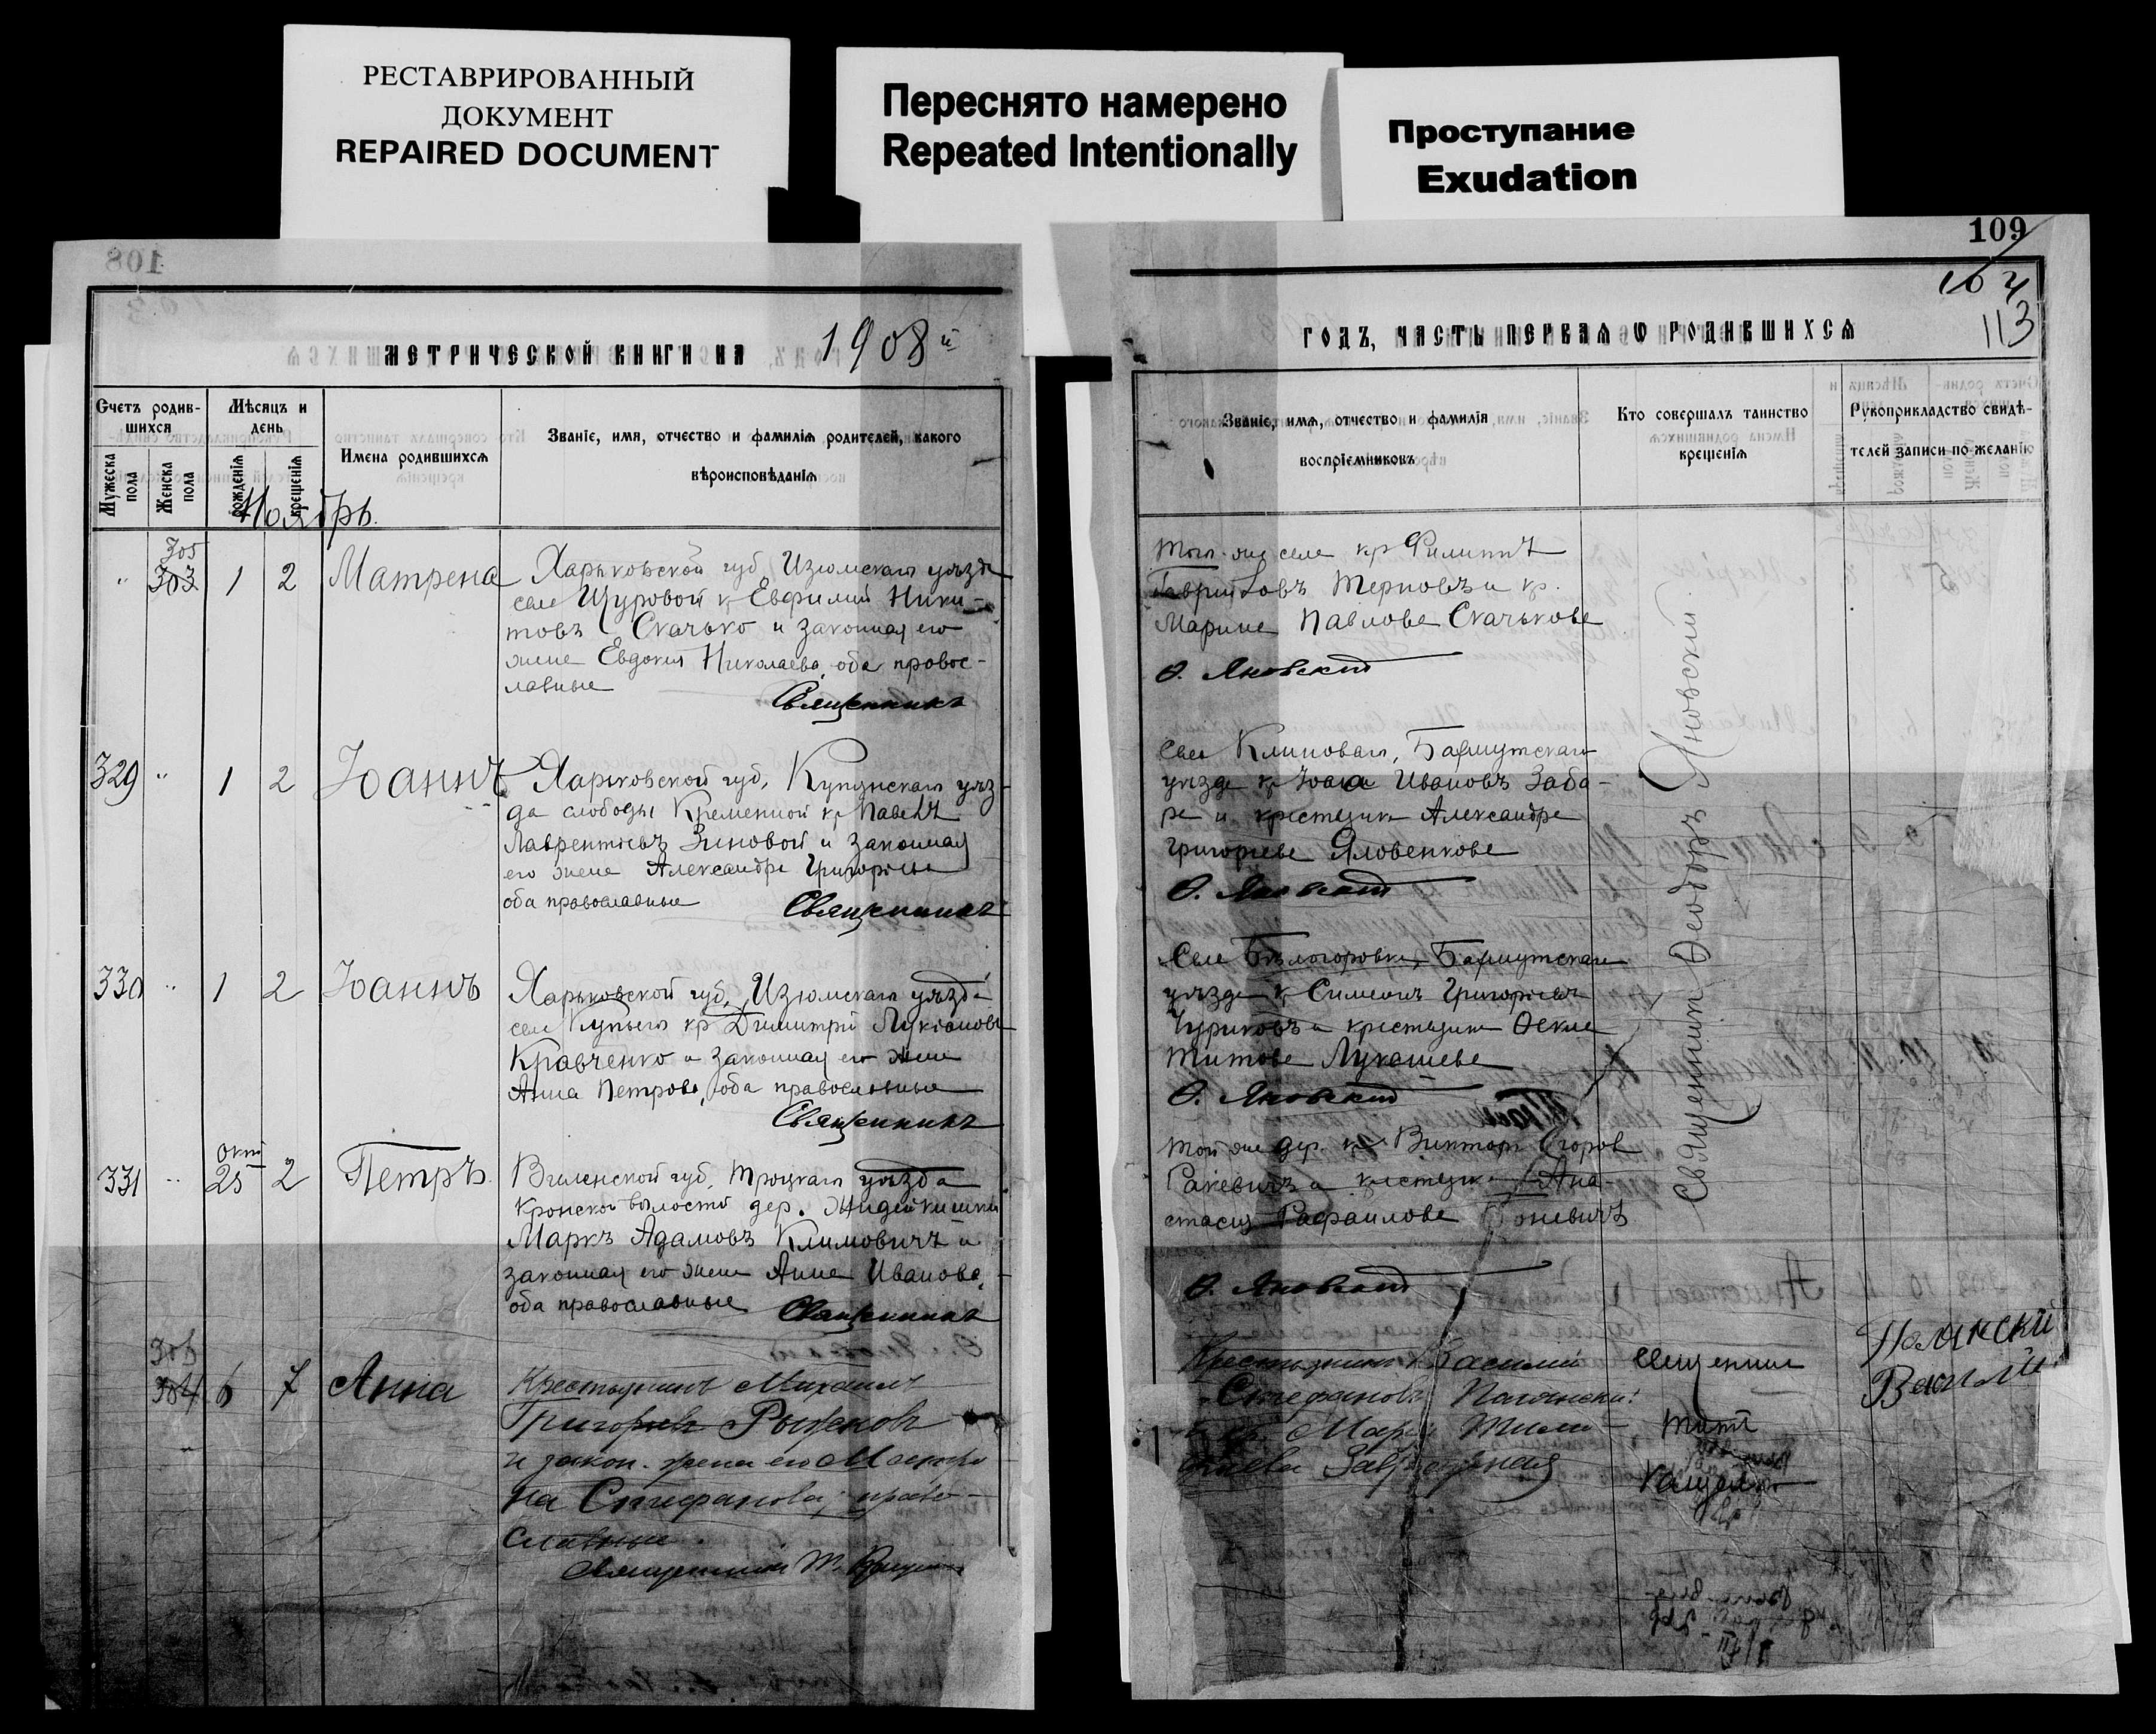 РЕСТАВРИРОВАННЫЙ
ДОКУМЕНТ
REPAIRED DOCUMENT
Переснято намерено
Repeated Intentionally
Проступание
Exudation
108
МЕТРИЧЕСКОЙ КНИГИ НА 1908 й
Счетъ родив-
шихся
Мужеска пола
Женска пола
Мѣсяцъ и
день
рожденія
крещенія
Имена родившихся
Званіе, имя, отчество и фамилія родителей, какого
вѣроисповѣданія
Ноябрь.
305
303 1 2 Матрена
Харьковской губ Изюмскаго уѣзда
села Щуровой кр Евфимій Ники-
товъ Скачько и законная его
жена Евдокія Николаева оба правос-
лавные
Священникъ
329 " 1 2 Іоаннъ
Харьковской губ, Купянскаго уѣз-
да слободы Кременной кр Павелъ
Лаврентіевъ Зиновой и законная
его жена Александра Григорьева
оба православные
Священникъ
330 " 1 2 Іоаннъ
Харьковской губ, Изюмскаго уѣзда
села кр Димитрій Лукіановъ
Кравченко и законная его жена
Анна Петрова, оба православные
Священникъ
331 " окт 25 2 Петръ
Виленской губ, Троцкаго уѣзда
Кронской волости дер. Жидейкишки
Маркъ Адамовъ Климовичъ и
законная его жена Анна Иванова,
оба православные
Священникъ
306
304 6 7 Анна
Крестьянинъ Михаилъ
Григорьевъ Рыженовъ
и закон. жена его Матро
на Стефанова; право-
славные.
Священникъ Т.
109
104
113
ГОДЪ, ЧАСТЬ ПЕРВАЯ О РОДИВШИХСЯ
Званіе, имя, отчество и фамилія
воспріемниковъ
Кто совершалъ таинство
крещенія
Рукоприкладство свидѣ-
телей записи по желанію
Того-же села кр Филиппъ
Гавриловъ Терновъ и кр.
Марина Павлова Скачькова
Ѳ. Яновскій
Села Клиноваго, Бахмутскаго
уѣзда кр Іоаннъ Ивановъ Заба-
ра и крестьянка Александра
Григорьева Яловенкова
Ѳ. Яновскій
Села Бѣлогоровки, Бахмутскаго
уѣзда кр Симеонъ Григорьевъ
Чуриковъ и крестьянка Ѳекла
Титова Лукашева
Ѳ. Яновскій
Той же дер. кр. Викторъ Егоров
Ракевичъ и крестьянка Ана-
стасія Рафаилова
Ѳ. Яновскій
Священникъ Ѳеодоръ Яновскій.
Крестьянинъ Василій
Стефановъ
и кр. Марія Тимо-
ѳеева
Священникъ
Титъ
Василій